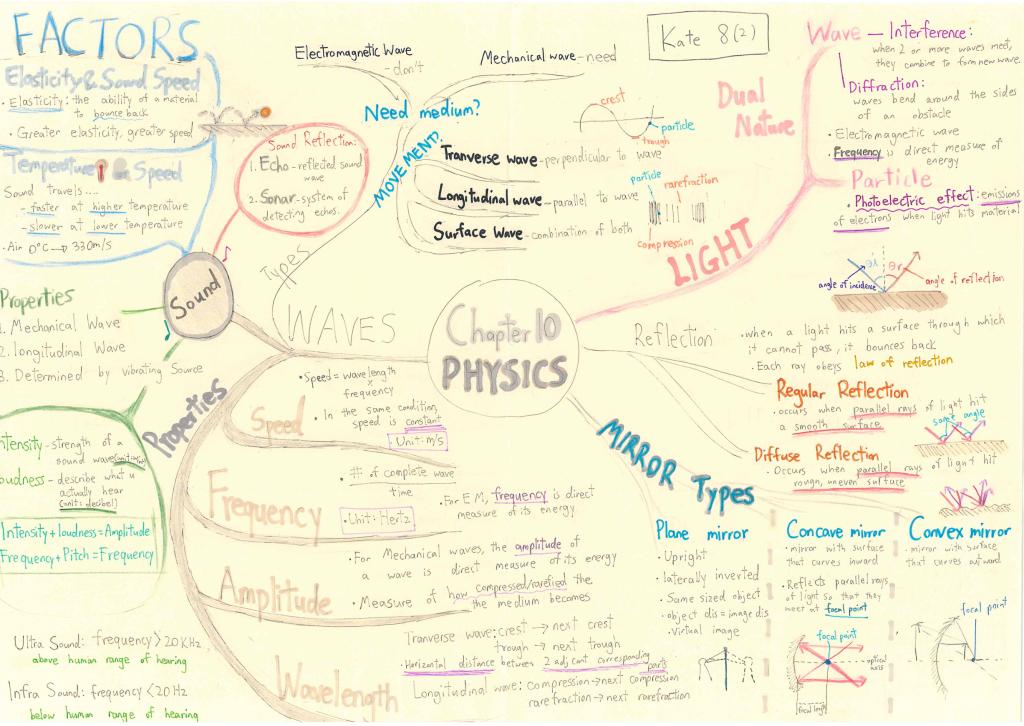 FACTORS
Elasticity & Sound Speed
• Elasticity: the ability of a material
to bounce back
• Greater elasticity, greater speed
Temperature & Speed
Sound travels....
- faster at higher temperature
- slower at lower temperature
• Air 0°C → 330m/s
Sound Reflection:
1. Echo - reflected sound
wave
2. Sonar - system of
detecting echos.
Sound
Properties
1. Mechanical Wave
2. longitudinal Wave
3. Determined by vibrating Source
ntensity - strength of a
sound wave
oudness - describe what u
actually hear
(unit: decibel)
Intensity + loudness = Amplitude
Frequency + Pitch = Frequency
Ultra Sound: frequency > 20KHz
above human range of hearing
Infra Sound: frequency < 20Hz
below human range of hearing
Kate 8(2)
Chapter 10
PHYSICS
WAVES
Types
Need medium?
Electromagnetic Wave
- don't
Mechanical wave - need
MOVEMENT?
Tranverse wave - perpendicular to wave
crest
particle
trough
Longitudinal wave - parallel to wave
particle
rarefraction
compression
Surface Wave - combination of both
Properties
Speed
• Speed = wavelength
x
frequency
• In the same condition,
speed is constant
Unit: m/s
Frequency
• # of complete wave
time
• Unit: Hertz
• For E.M, frequency is direct
measure of its energy
Amplitude
• For Mechanical waves, the amplitude of
a wave is direct measure of its energy
• Measure of how compressed/rarefied the
the medium becomes
Wavelength
Tranverse wave: crest → next crest
trough → next trough
• Horizontal distance between 2 adjcant corresponding parts
Longitudinal wave: compression → next compression
rarefraction → next rarefraction
LIGHT
Dual
Nature
Wave — Interference:
when 2 or more waves meet,
they combine to form new wave.
Diffraction:
waves bend around the sides
of an obstacle
• Electromagnetic wave
• Frequency is direct measure of
energy
Particle
• Photoelectric effect: emissions
of electrons when light hits material
θi
θr
angle of incidence
angle of reflection
Reflection
• when a light hits a surface through which
it cannot pass, it bounces back
• Each ray obeys law of reflection
Regular Reflection
• occurs when parallel rays of light hit
a smooth surface
same angle
Diffuse Reflection
• Occurs when parallel rays of light hit
rough, uneven surface
MIRROR TYPES
Plane mirror
• Upright
• laterally inverted
• Same sized object
• object dis = image dis
• Virtual image
Concave mirror
• mirror with surface
that curves inward
• Reflects parallel rays
of light so that they
meet at focal point
focal point
optical
axis
Convex mirror
• mirror with surface
that curves outward
focal point